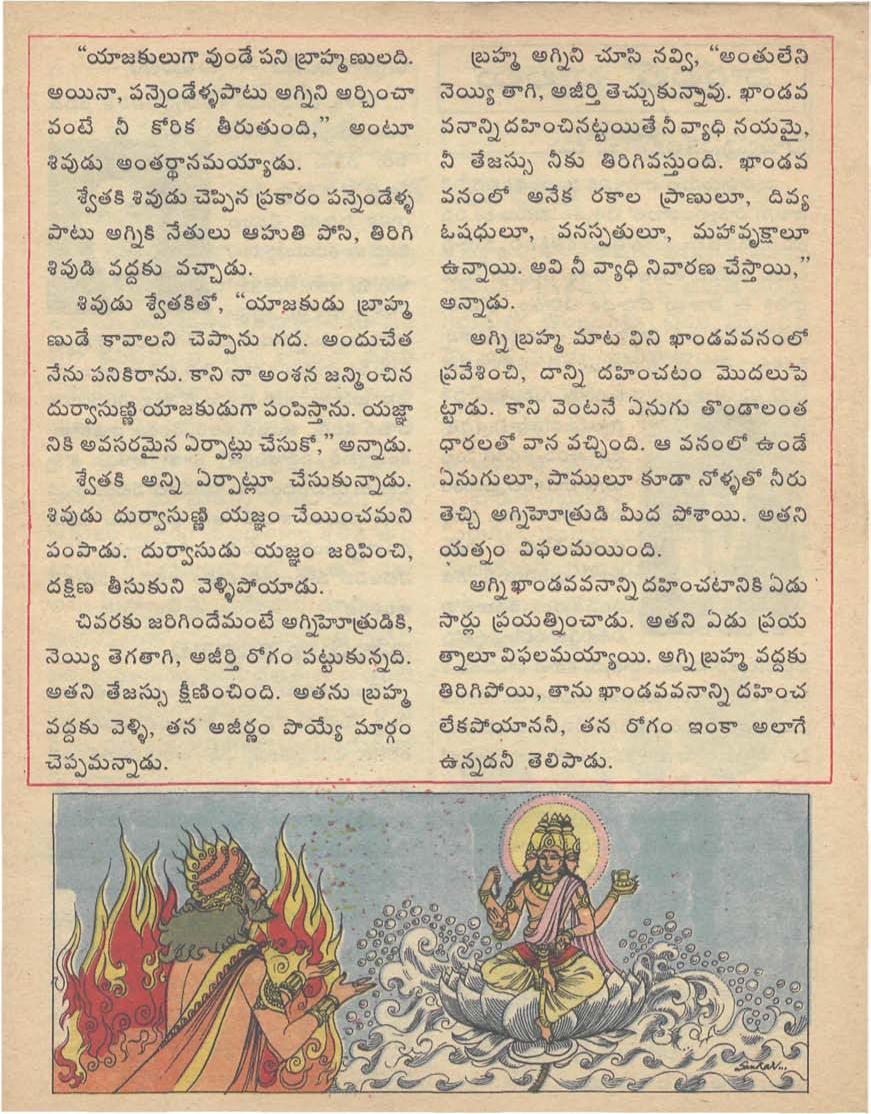 “యాజకులుగా వుండే పని బ్రాహ్మణులది.
అయినా, పన్నెండేళ్ళపాటు అగ్నిని అర్చించా
వంటే నీ కోరిక తీరుతుంది,” అంటూ
శివుడు అంతర్థానమయ్యాడు.
శ్వేతకి శివుడు చెప్పిన ప్రకారం పన్నెండేళ్ళ
పాటు అగ్నికి నేతులు ఆహుతి పోసి, తిరిగి
శివుడి వద్దకు వచ్చాడు.
శివుడు శ్వేతకితో, “యాజకుడు బ్రాహ్మ
ణుడే కావాలని చెప్పాను గద. అందుచేత
నేను పనికిరాను. కాని నా అంశన జన్మించిన
దుర్వాసుణ్ణి యాజకుడుగా పంపిస్తాను. యజ్ఞా
నికి అవసరమైన ఏర్పాట్లు చేసుకో,” అన్నాడు.
శ్వేతకి అన్ని ఏర్పాట్లూ చేసుకున్నాడు.
శివుడు దుర్వాసుణ్ణి యజ్ఞం చేయించమని
పంపాడు. దుర్వాసుడు యజ్ఞం జరిపించి,
దక్షిణ తీసుకుని వెళ్ళిపోయాడు.
చివరకు జరిగిందేమంటే అగ్నిహోత్రుడికి,
నెయ్యి తెగతాగి, అజీర్తి రోగం పట్టుకున్నది.
అతని తేజస్సు క్షీణించింది. అతను బ్రహ్మ
వద్దకు వెళ్ళి, తన అజీర్ణం పొయ్యే మార్గం
చెప్పమన్నాడు.
బ్రహ్మ అగ్నిని చూసి నవ్వి, “అంతులేని
నెయ్యి తాగి, అజీర్తి తెచ్చుకున్నావు. ఖాండవ
వనాన్ని దహించినట్టయితే నీ వ్యాధి నయమై,
నీ తేజస్సు నీకు తిరిగివస్తుంది. ఖాండవ
వనంలో అనేక రకాల ప్రాణులూ, దివ్య
ఓషధులూ, వనస్పతులూ, మహావృక్షాలూ
ఉన్నాయి. అవి నీ వ్యాధి నివారణ చేస్తాయి,”
అన్నాడు.
అగ్ని బ్రహ్మ మాట విని ఖాండవవనంలో
ప్రవేశించి, దాన్ని దహించటం మొదలుపె
ట్టాడు. కాని వెంటనే ఏనుగు తొండాలంత
ధారలతో వాన వచ్చింది. ఆ వనంలో ఉండే
ఏనుగులూ, పాములూ కూడా నోళ్ళతో నీరు
తెచ్చి అగ్నిహోత్రుడి మీద పోశాయి. అతని
యత్నం విఫలమయింది.
అగ్ని ఖాండవవనాన్ని దహించటానికి ఏడు
సార్లు ప్రయత్నించాడు. అతని ఏడు ప్రయ
త్నాలూ విఫలమయ్యాయి. అగ్ని బ్రహ్మ వద్దకు
తిరిగిపోయి, తాను ఖాండవవనాన్ని దహించ
లేకపోయాననీ, తన రోగం ఇంకా అలాగే
ఉన్నదనీ తెలిపాడు.
SANKAR...